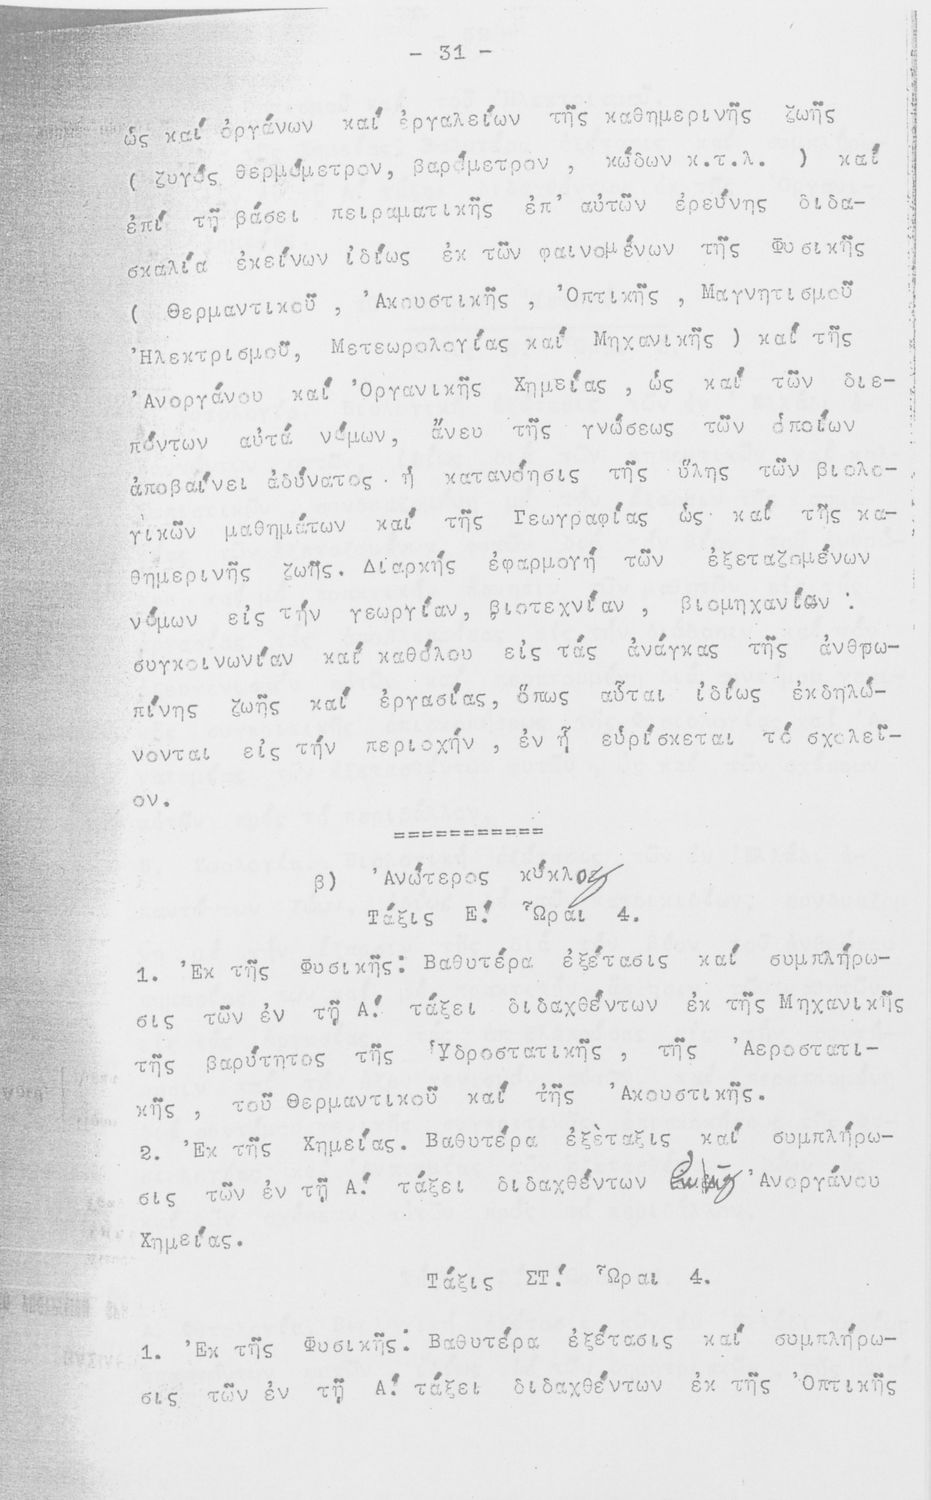 - 31 -
ὡς καί ὀργάνων καί ἐργαλείων τῆς καθημερινῆς ζωῆς
( ζυγός θερμόμετρον, βαρόμετρον , κώδων κ.τ.λ. ) καί
ἐπί τῇ βάσει πειραματικῆς ἐπ' αὐτῶν ἐρεύνης διδα-
σκαλία ἐκείνων ἰδίως ἐκ τῶν φαινομένων τῆς Φυσικῆς
( Θερμαντικοῦ , Ἀκουστικῆς , Ὀπτικῆς , Μαγνητισμοῦ
Ἠλεκτρισμοῦ, Μετεωρολογίας καί Μηχανικῆς ) καί τῆς
Ἀνοργάνου καί Ὀργανικῆς Χημείας , ὡς καί τῶν διε-
πόντων αὐτά νόμων, ἄνευ τῆς γνώσεως τῶν ὁποίων
ἀποβαίνει ἀδύνατος ἡ κατανόησις τῆς ὕλης τῶν βιολο-
γικῶν μαθημάτων καί τῆς Γεωγραφίας ὡς καί τῆς κα-
θημερινῆς ζωῆς. Διαρκής ἐφαρμογή τῶν ἐξεταζομένων
νόμων εἰς τήν γεωργίαν, βιοτεχνίαν , βιομηχανίαν :
συγκοινωνίαν καί καθόλου εἰς τάς ἀνάγκας τῆς ἀνθρω-
πίνης ζωῆς καί ἐργασίας, ὅπως αὗται ἰδίως ἐκδηλώ-
νονται εἰς τήν περιοχήν , ἐν ᾗ εὑρίσκεται τό σχολεῖ-
ον.
===========
β) Ἀνώτερος κύκλος
Τάξις Ε! Ὧραι 4.
1. Ἐκ τῆς Φυσικῆς: Βαθυτέρα ἐξέτασις καί συμπλήρω-
σις τῶν ἐν τῇ Α! τάξει διδαχθέντων ἐκ τῆς Μηχανικῆς
τῆς βαρύτητος τῆς Ὑδροστατικῆς , τῆς Ἀεροστατι-
κῆς , τοῦ Θερμαντικοῦ καί τῆς Ἀκουστικῆς.
2. Ἐκ τῆς Χημείας. Βαθυτέρα ἐξὲταξις καί συμπλήρω-
σις τῶν ἐν τῇ Α! τάξει διδαχθέντων ἐκ τῆς Ἀνοργάνου
Χημείας.
Τάξις ΣΤ! Ὧραι 4.
1. Ἐκ τῆς Φυσικῆς: Βαθυτέρα ἐξέτασις καί συμπλήρω-
σις τῶν ἐν τῇ Α! τάξει διδαχθέντων ἐκ τῆς Ὀπτικῆς